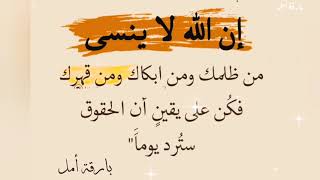 إن الله لا ينسى
من ظلمك ومن ابكاك ومن قهرك
فكُن على يقينٍ آن الحقوق
ستُرد يوماَ"
بارقة أمل